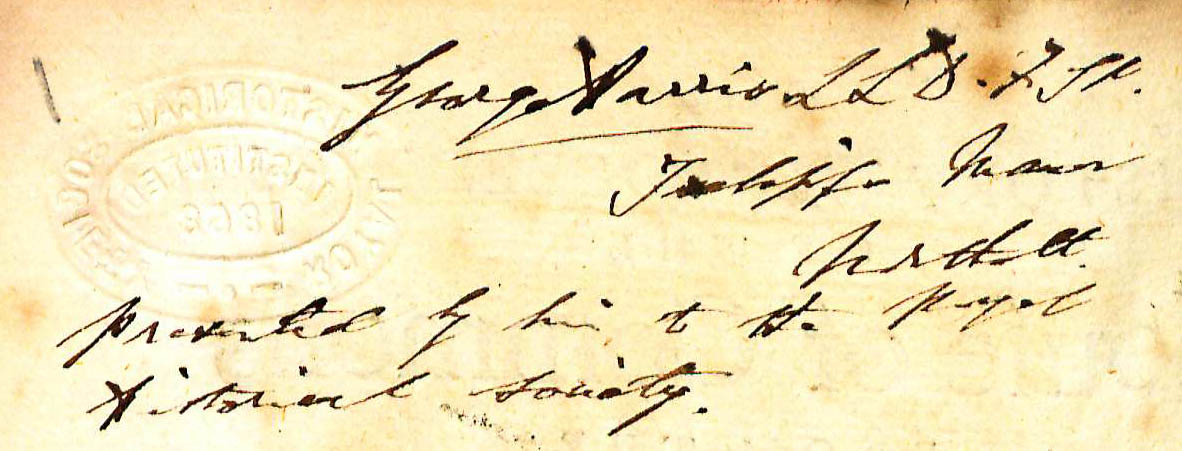 George Harris LLD. F.S.A.
Iselipps Manor
Northolt.
presented by him to the Royal
Historical Society.
ROYAL HISTORICAL SOCIETY
INSTITUTED
1868